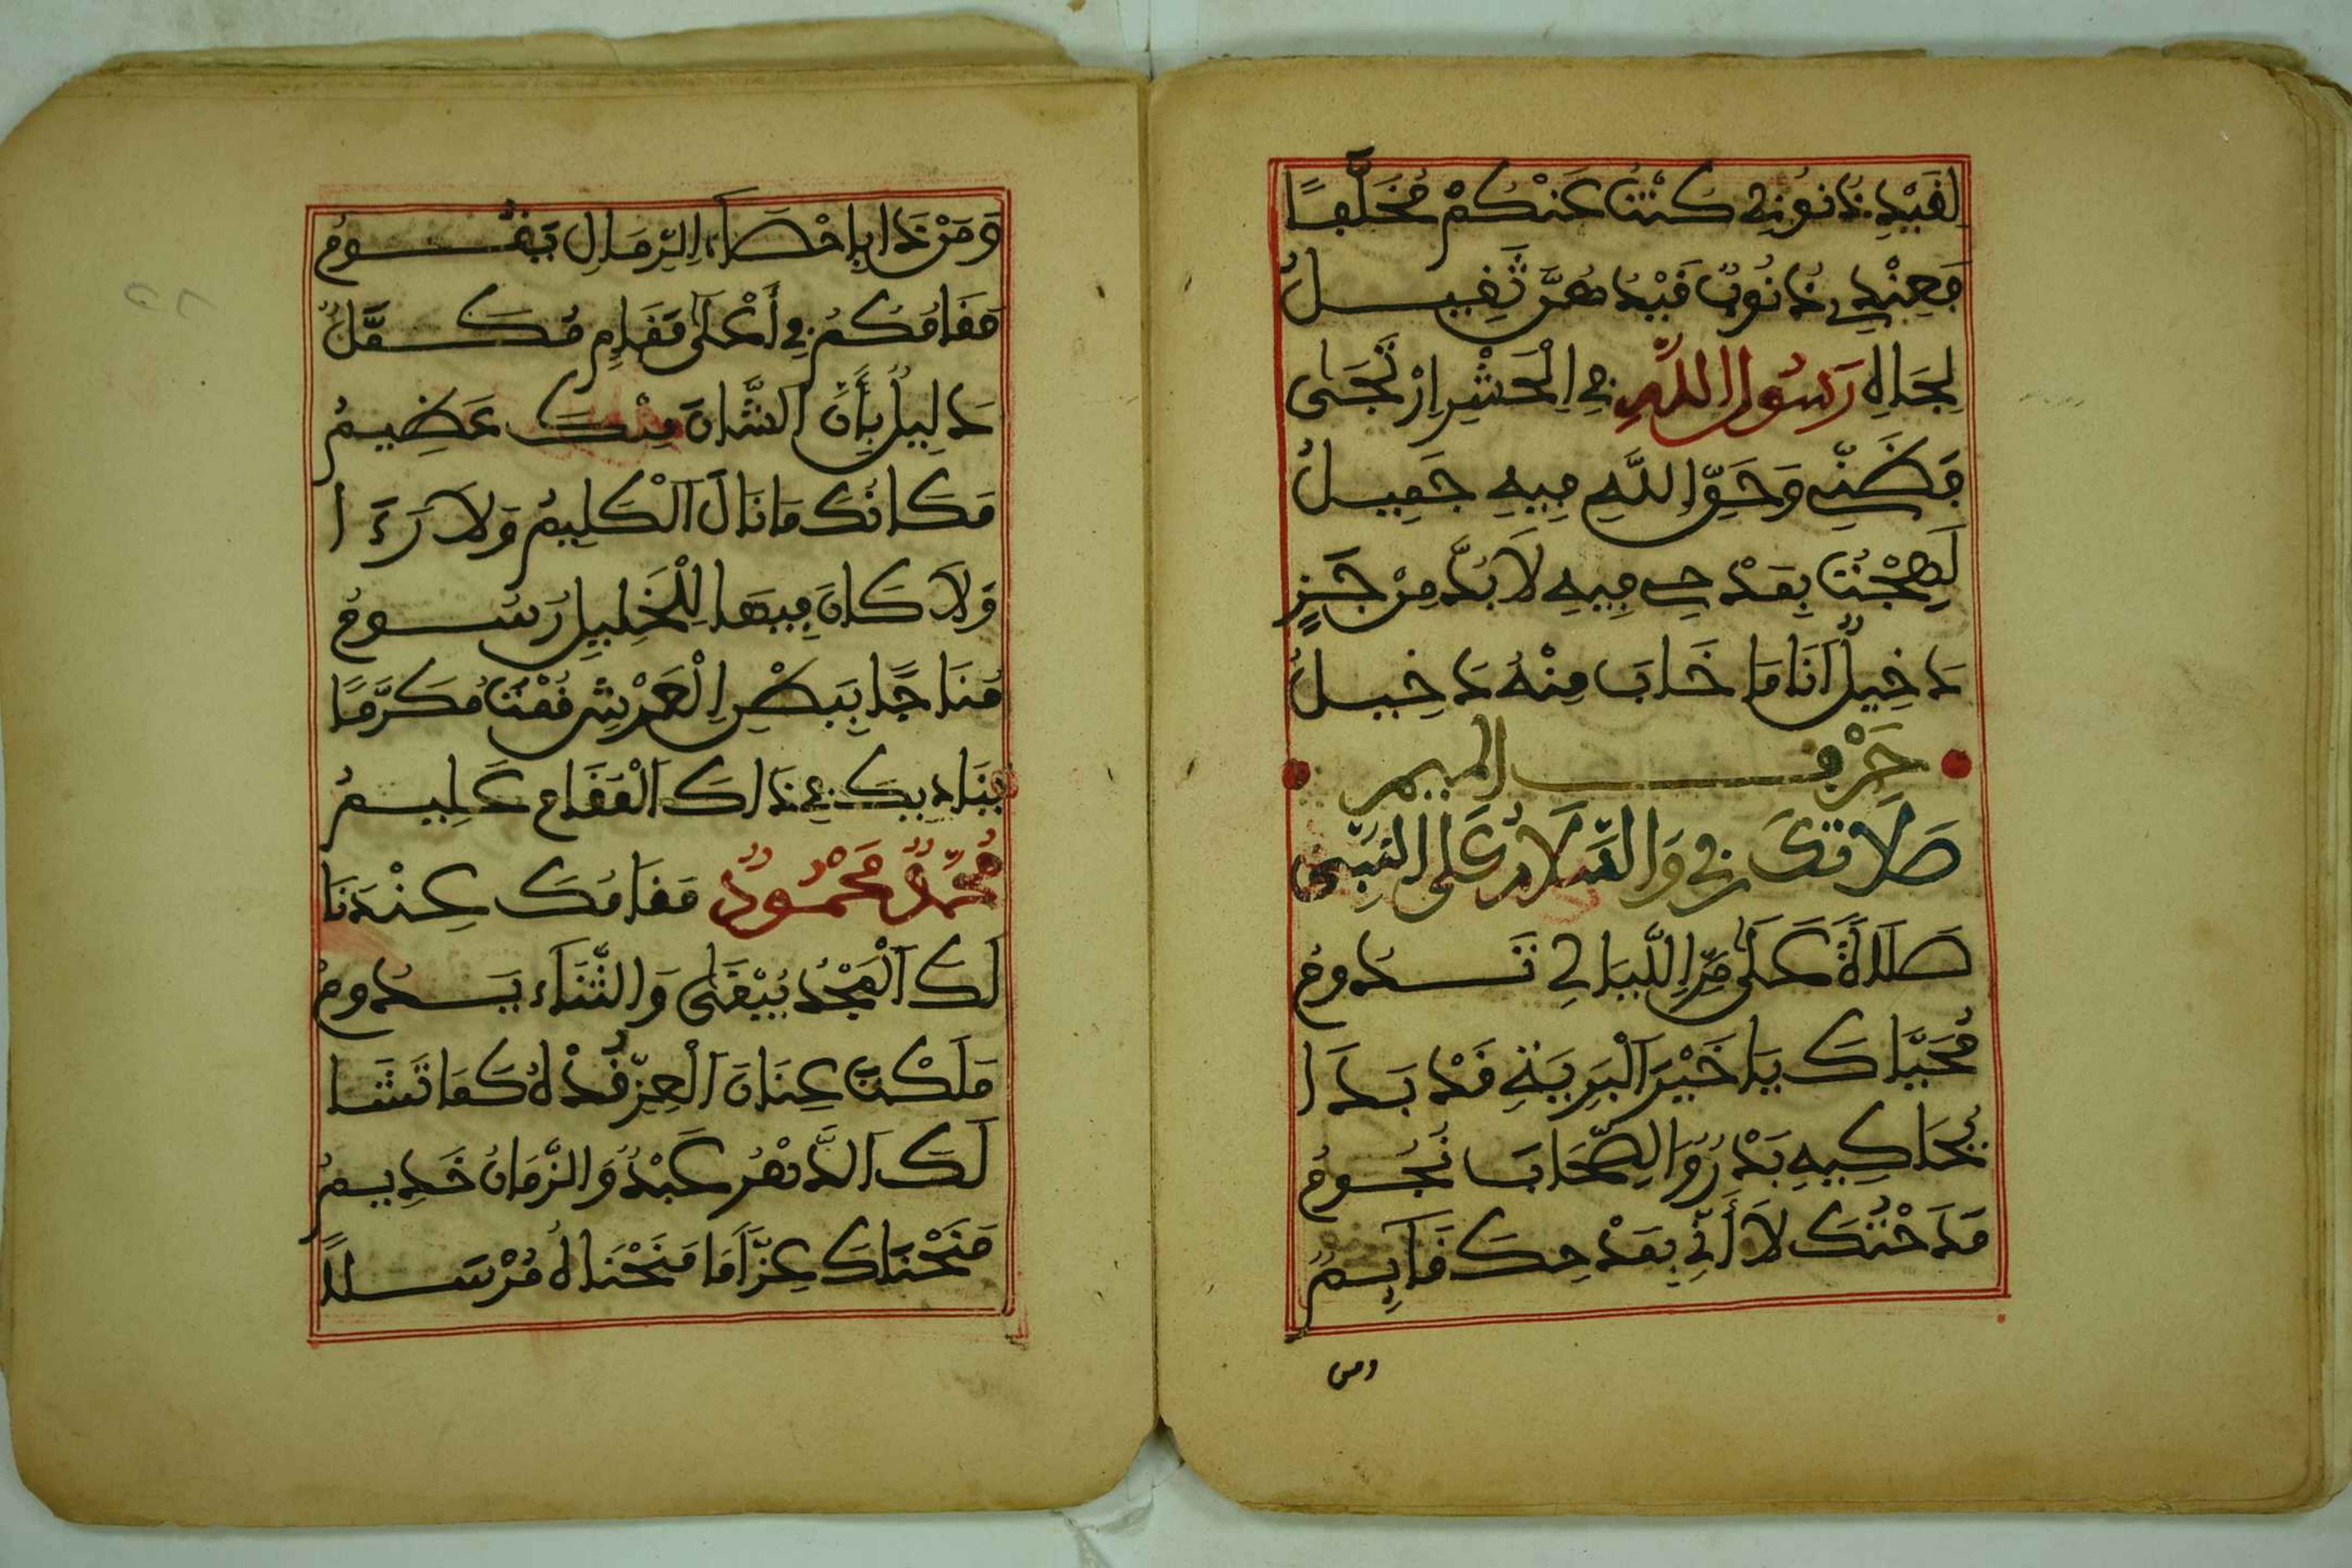 لِقَيْدِ ذُنُوبِي كُنْتُ عَنْكُمْ مُخَلَّفًا
فَعِنْدِي ذُنُوبٌ قَيْدُهُنَّ ثَقِيلُ
لِجَاهِ رَسُولِ اللَّهِ فِي الْحَشْرِ اِرْتَجَى
فَظَنِّي وَحَقِّ اللَّهِ فِيهِ جَمِيلُ
لَهِجْتُ بِمَدْحِي فِيهِ لَا بُدَّ مِنْ جَزٍ
دَخِيلٌ اَنَا مَا خَابَ مِنْهُ دَخِيلُ
حَرْف الميم
صَلَاتُكَ رَبِّي وَالسَّلَامُ عَلَى النَّبِيِّ
صَلَاةٌ عَلَى مَرِّ اللَّيَالِي تَدُومُ
مُحَيَّاكَ يَا خَيْرَ الْبَرِيَّةِ قَدْ بَدَا
يُحَاكِيهِ بَدْرُ وَالصِّحَابَ نُجُومُ
مَدَحْتُكَ لَا أَنِّي بِمَدْحِكَ قَايِمٌ
ومن
وَمَنْ ذَا بِإِحْصَاءِ الرِّمَالِ يَقُومُ
مَقَامُكُمُ فِي أَعْلَى مَقَامٍ مُكَمَّلُ
دَلِيلٌ بِأَنَّ الشَّانَ مِنْكَ عَظِيمُ
مَكَانُكَ مَا نَالَ الْكَلِيمُ وَلَا رَءَا
وَلَا كَانَ فِيهَا لِلْخَلِيلِ رُسُومُ
مُنَاجًا بِبَطْنِ الْعَرْشِ قُمْتَ مُكَرَّمًا
يُنَادِيكَ فِي ذَاكَ الْمَقَامِ عَلِيمُ
مُحَمَّدٌ مَحْمُودٌ مَقَامُكَ عِنْدَنَا
لَكَ الْمَجْدُ يَبْقَى وَالثَّنَاءُ يَدُومُ
مَلَكْتَ عِنَانَ الْعِزِّ قُدْهُ كَمَا تَشَا
لَكَ الدَّهْرُ عَبْدُ وَالزَّمَانُ خَدِيمُ
مَنَحْنَاكَ عِزًّا مَا مَنَحْنَاهُ مُرْسَلًا